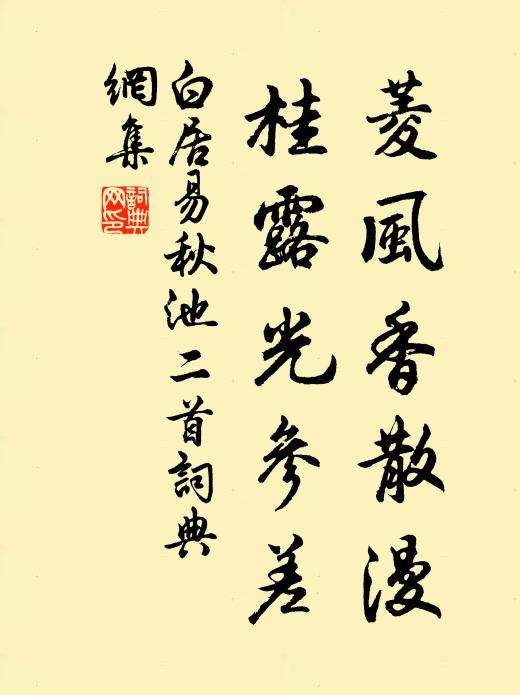 菱風香散漫
桂露光參差
白居易秋池二首詞典
網集
詞典网印